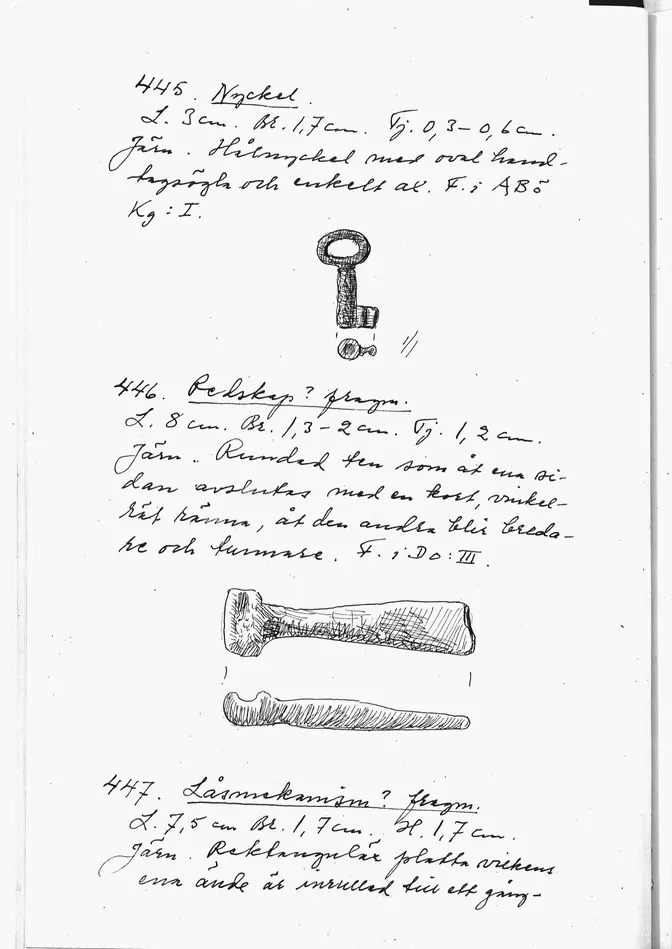 445. Nyckel.
L. 3 cm. Br. 1,7 cm. Tj. 0,3-0,6 cm.
Järn. Hålnyckel med oval hand-
tagsögla och enkelt ax. F. i ABö
Kg: I.
1/1
446. Redskap? fragm.
L. 8 cm. Br. 1,3-2 cm. Tj. 1,2 cm.
Järn. Rundad ten som åt ena si-
dan avslutas med en kort, vinkel-
rät ränna, åt den andra blir breda-
re och tunnare. F. i Do: III.
447. Låsmekanism? fragm.
L. 7,5 cm Br. 1,7 cm. H. 1,7 cm.
Järn. Rektangulär platta vilkens
ena ände är inrullad till ett gång-